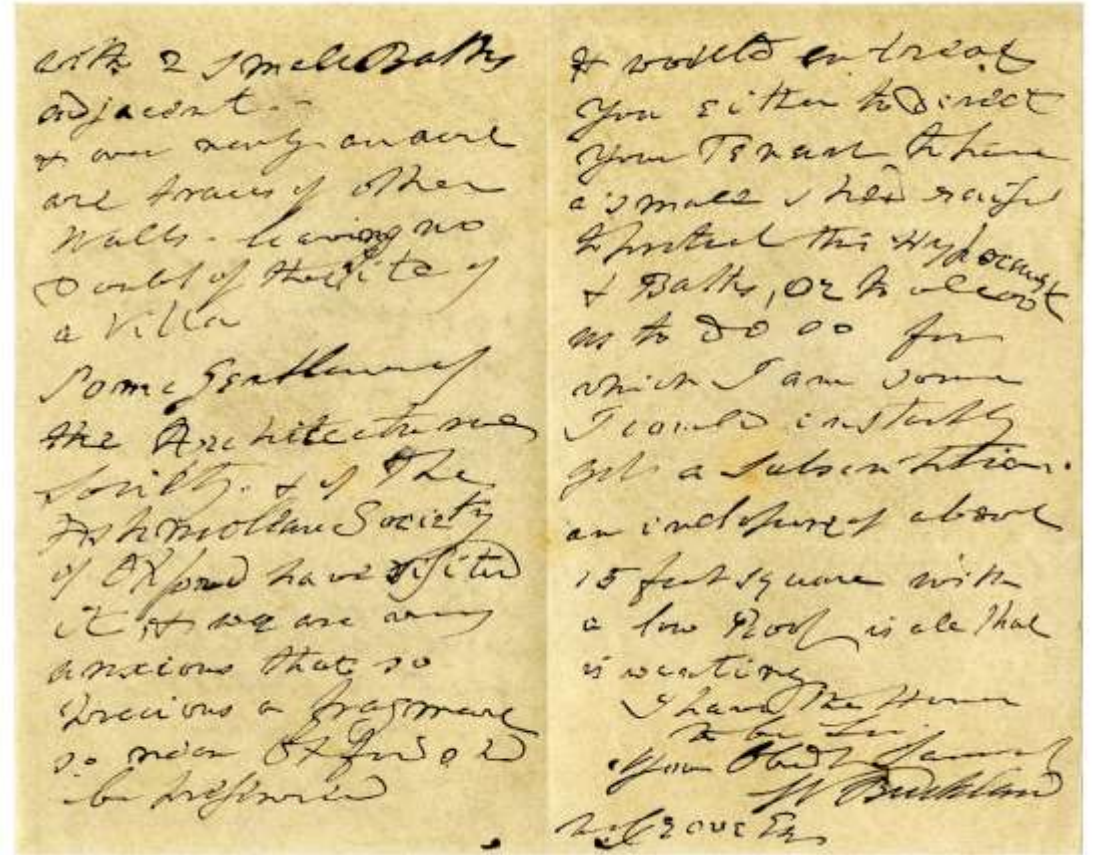 with 2 small Baths
adjacent -
& over nearly an acre
are traces of other
Walls - leaving no
Doubt of the Site of
a Villa
Some Gentlemen of
the Architectural
Society. & of The
Ashmolean Society
of Oxford have visited
it, & we are very
anxious that so
precious a fragment
so near Oxford sd
be preserved
& would entreat
you either to Direct
your Tenant to have
a small shed raised
to protect this Hypocaust
& Baths, or to allow
us to do so for
which I am sure
I could instantly
get a Subscription.
an inclosure of about
15 feet square with
a low Roof is all that
is wanting
I have the Honor
to be Sir
Your Obedt Servant
W Buckland
Grove Esq